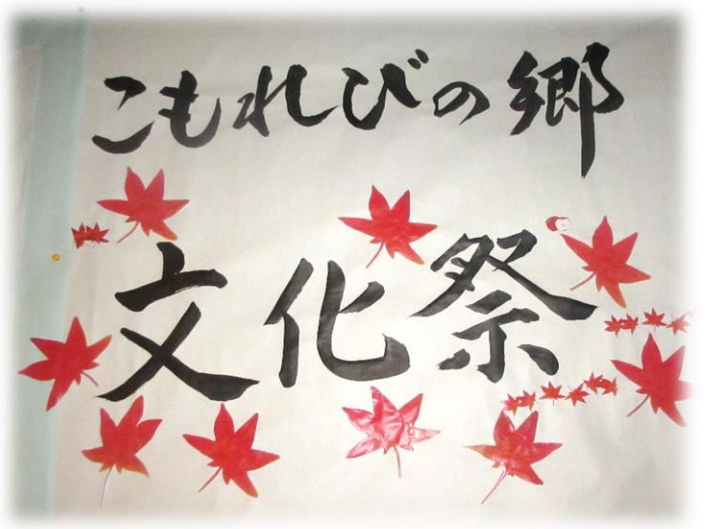 こもれびの郷
文化祭